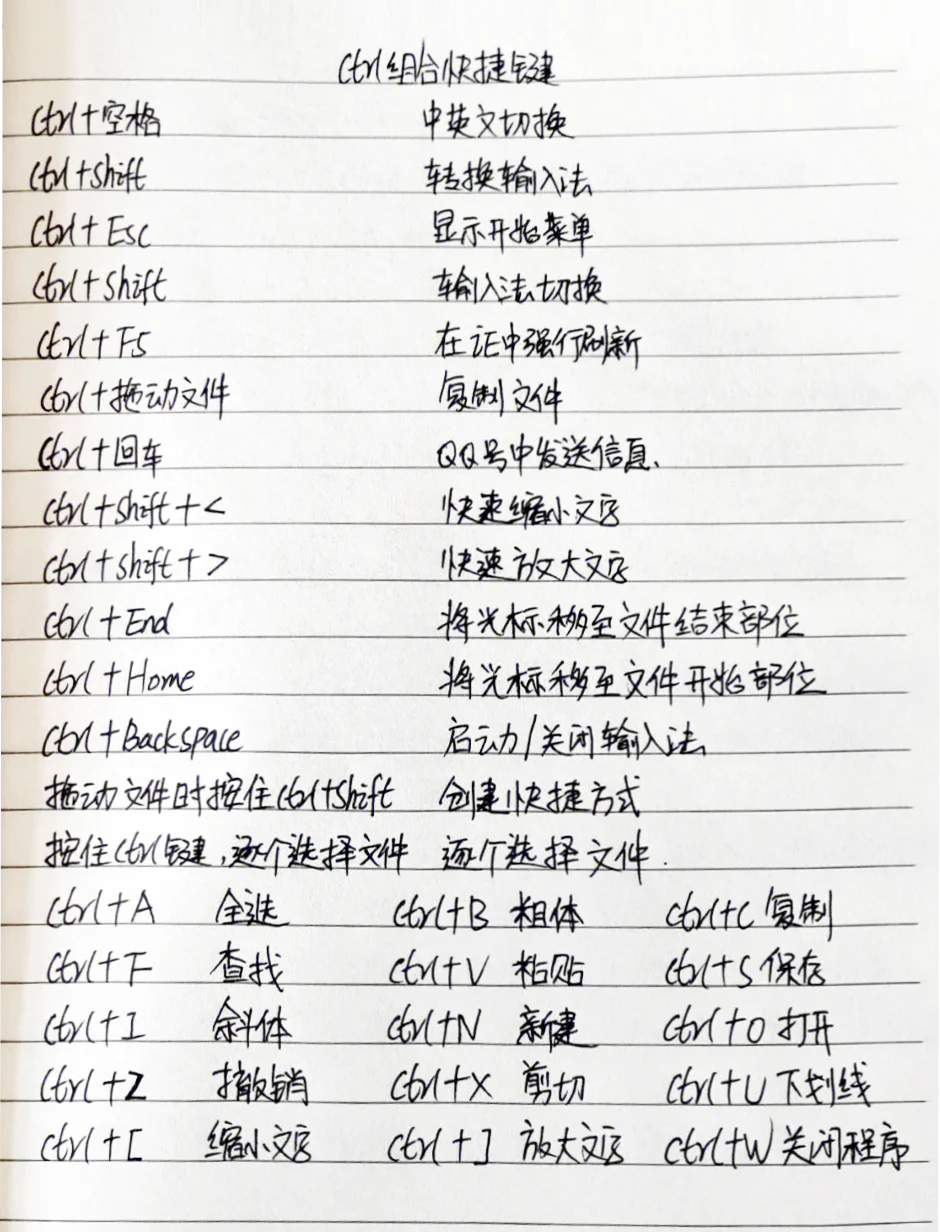 Ctrl组合快捷键
Ctrl+空格 中英文切换
Ctrl+Shift 转换输入法
Ctrl+Esc 显示开始菜单
Ctrl+Shift 输入法切换
Ctrl+F5 在IE中强行刷新
Ctrl+拖动文件 复制文件
Ctrl+回车 QQ号中发送信息、
Ctrl+shift+< 快速缩小文字
Ctrl+shift+> 快速放大文字
Ctrl+End 将光标移至文件结束部位
Ctrl+Home 将光标移至文件开始部位
Ctrl+Backspace 启动/关闭输入法
拖动文件时按住Ctrl+Shift 创建快捷方式
按住Ctrl键,逐个选择文件 逐个选择文件.
Ctrl+A 全选 Ctrl+B 粗体 Ctrl+C 复制
Ctrl+F 查找 Ctrl+V 粘贴 Ctrl+S 保存
Ctrl+I 斜体 Ctrl+N 新建 Ctrl+O 打开
Ctrl+Z 撤销 Ctrl+X 剪切 Ctrl+U 下划线
Ctrl+[ 缩小文字 Ctrl+] 放大文字 Ctrl+W 关闭程序